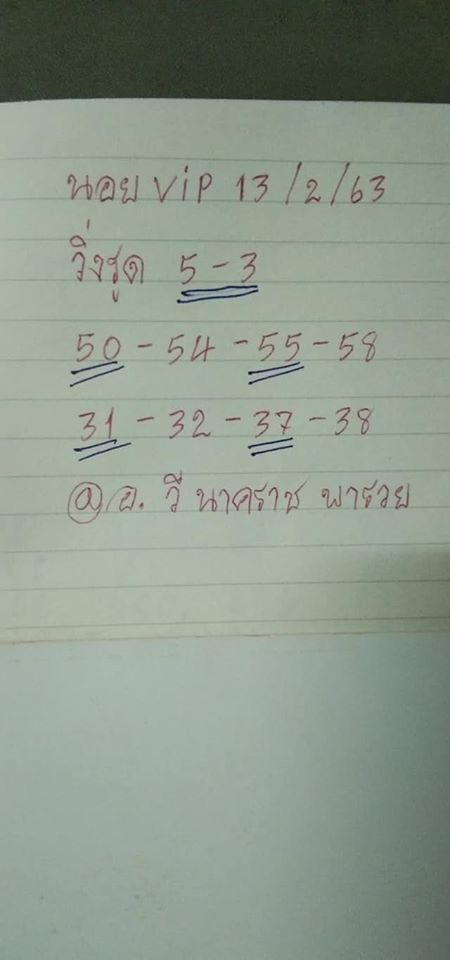 นอย VIP 13/2/63
วิ่งรูด 5-3
50-54-55-58
31-32-37-38
@อ. วี นาคราช พารวย